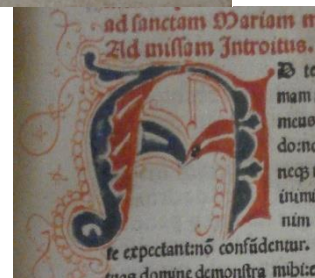 ad sanctam Mariam m
Ad missam Introitus.
AD te
mam
meus
do: no
neq3
inimi
nim
te expectant: nō confūdentur.
tuas domine demonstra mihi: e